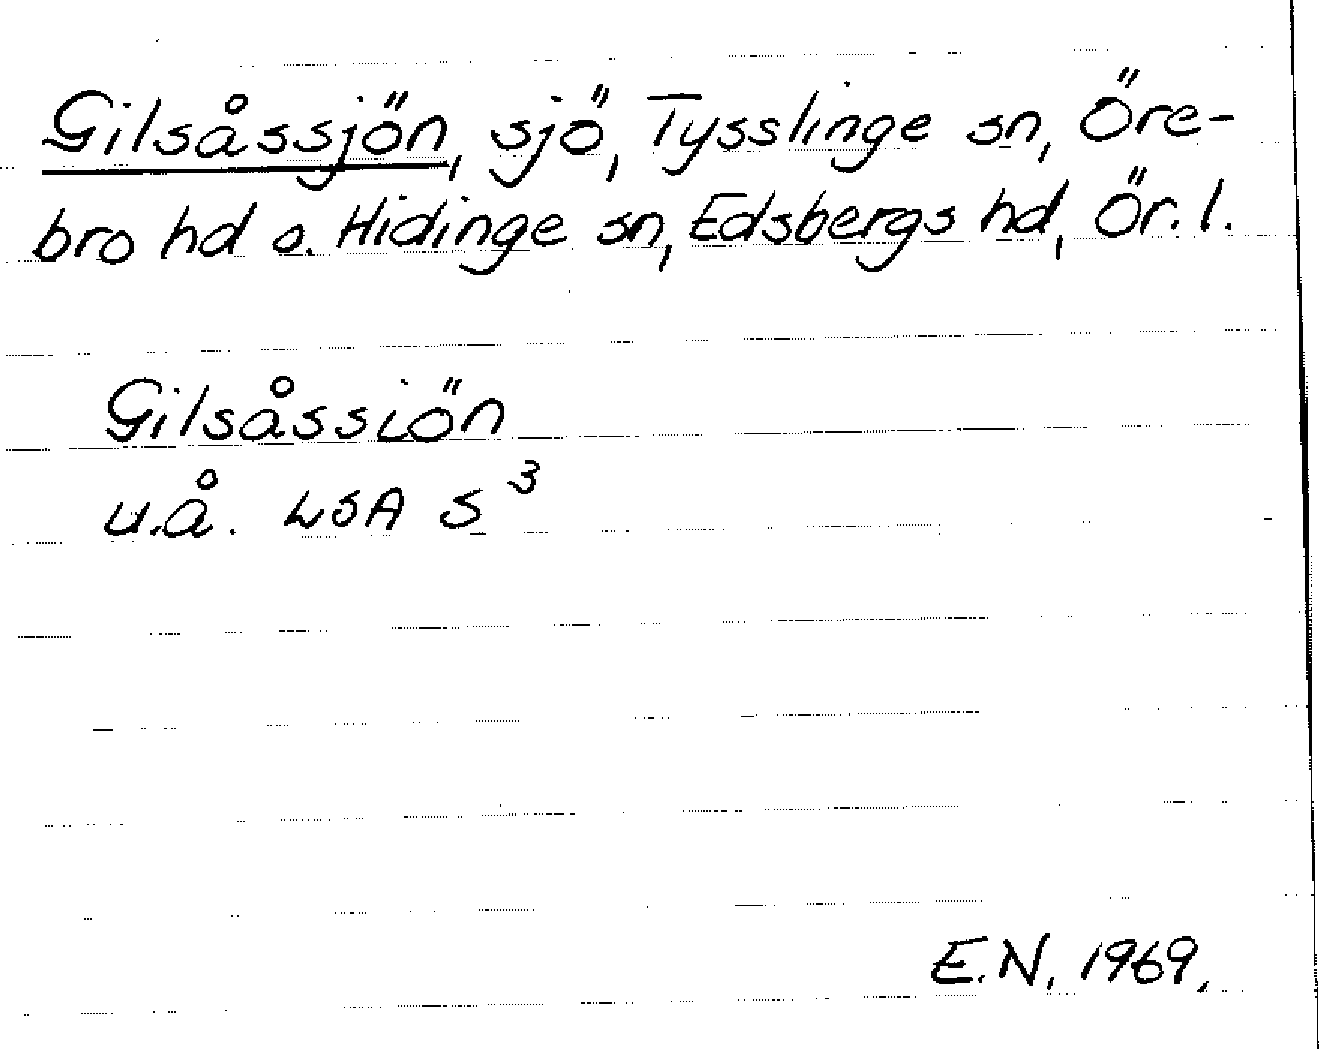 Gilsåssjön, sjö, Tysslinge sn, Öre-
bro hd o. Hidinge sn, Edsbergs hd, Ör. l.
Gilsåssiön
u.å. LSA S³
E.N. 1969.